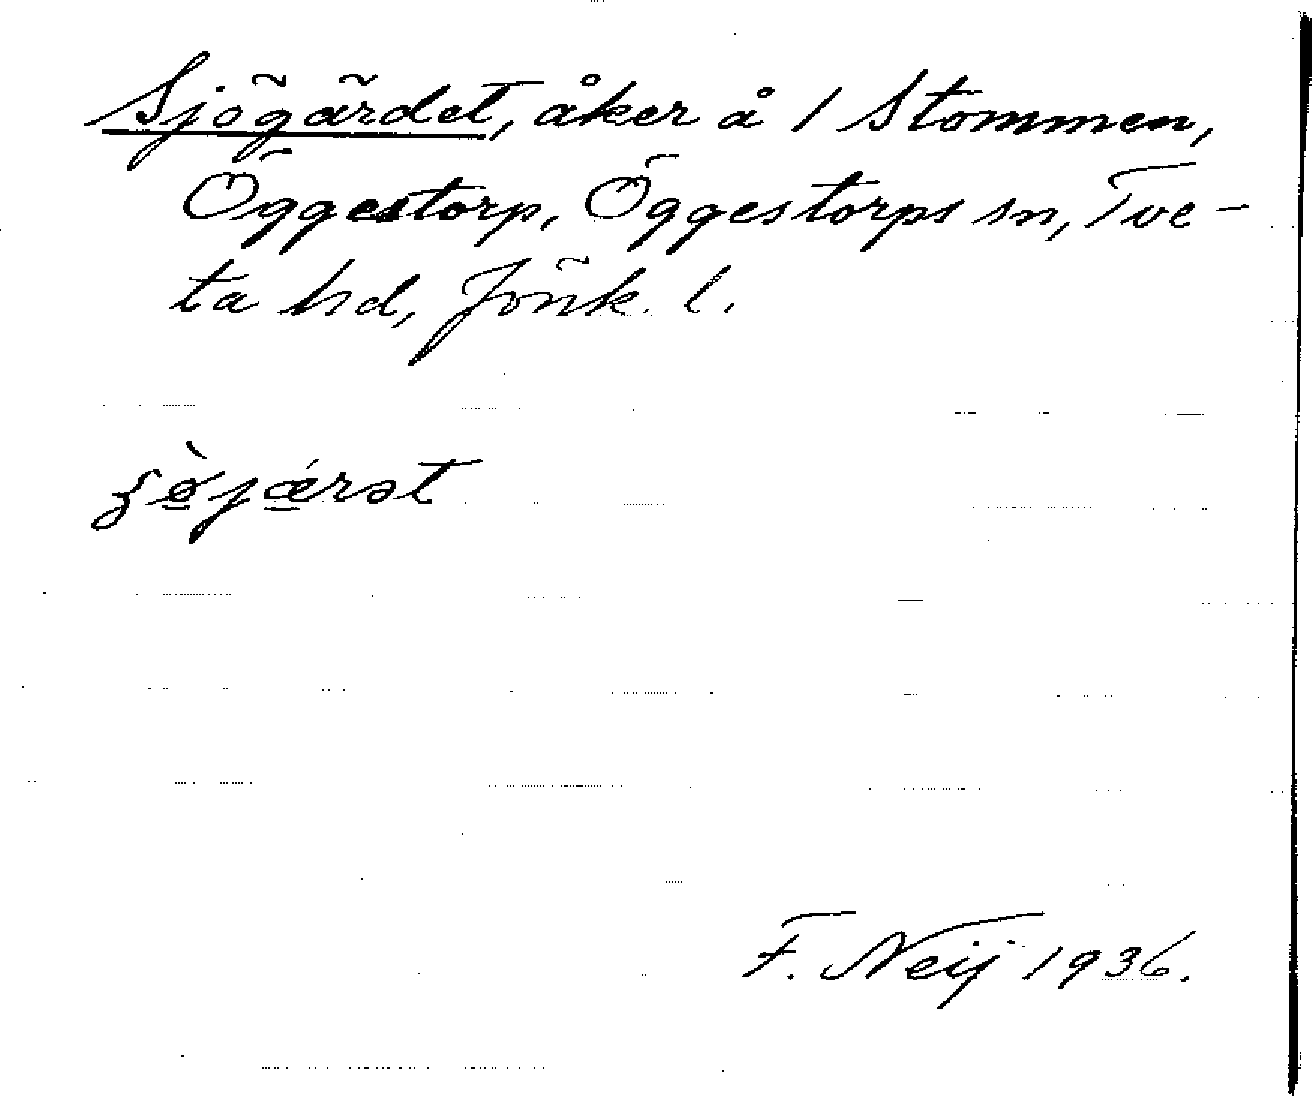 Sjögärdet, åker å 1 Stommen,
Öggestorp, Öggestorps sn, Tve-
ta hd, Jönk. l.
ʃø̠̀jǽ̠rət
F. Neij 1936.